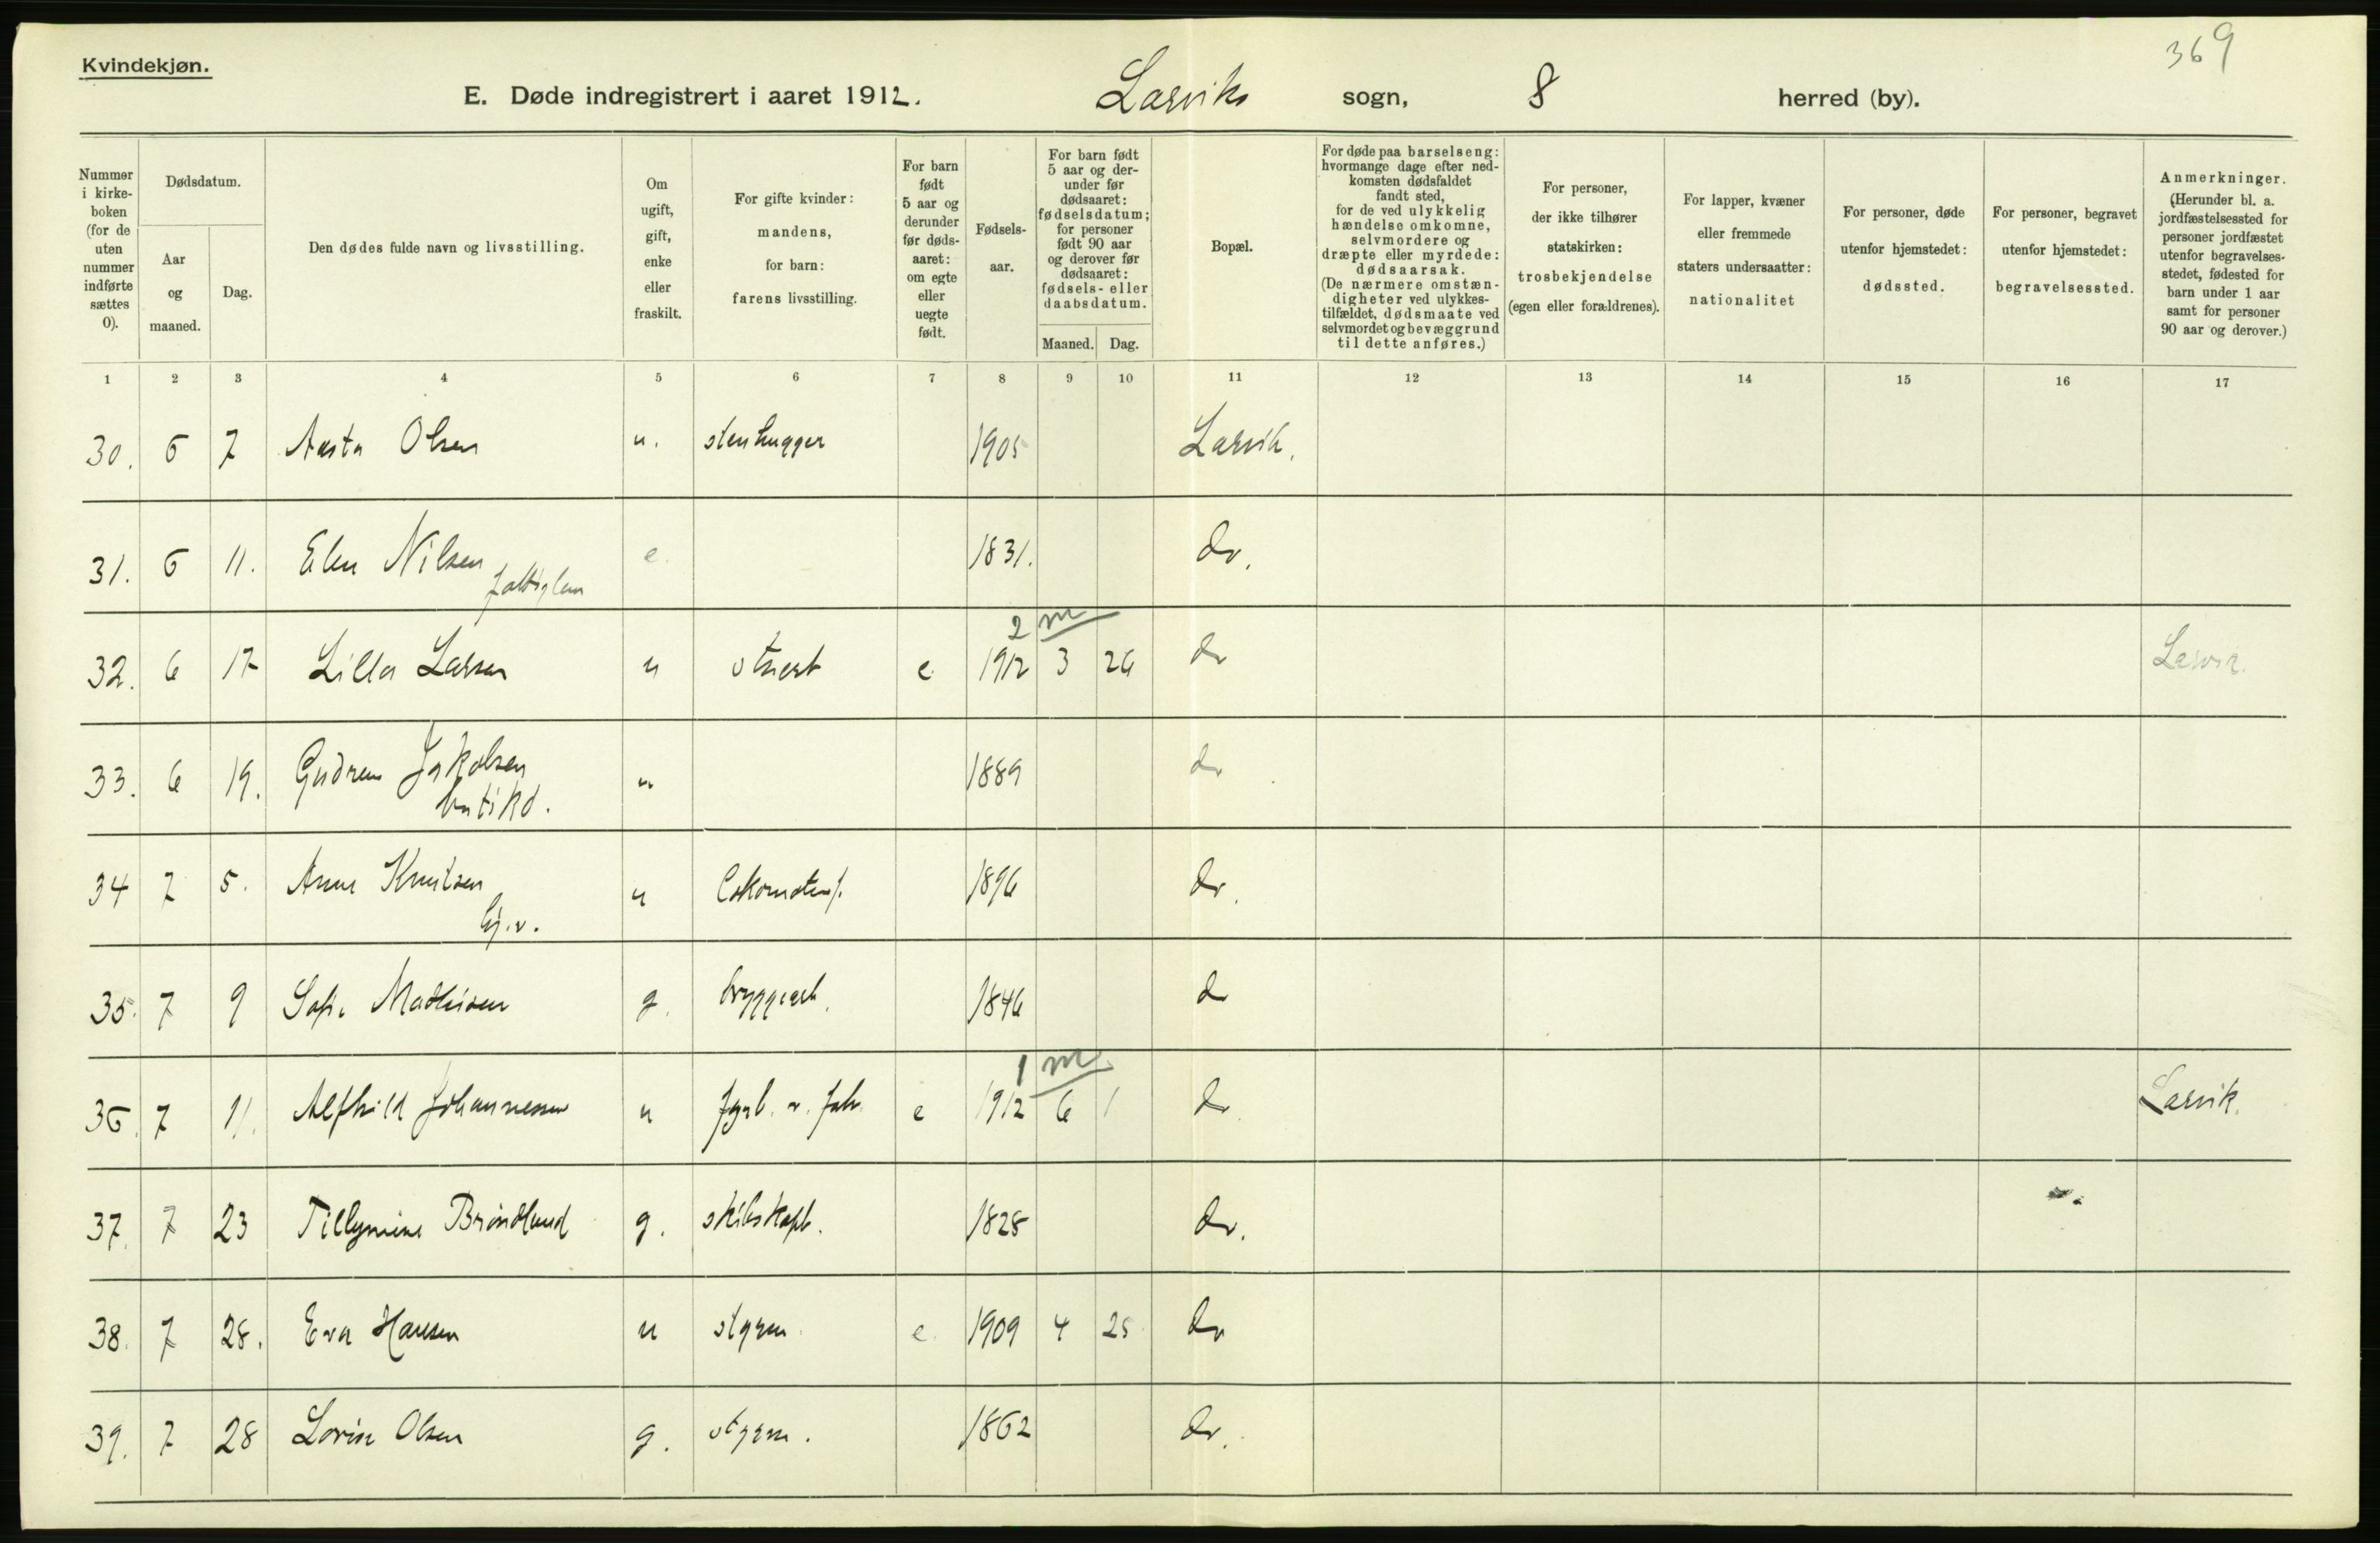 369
Kvindekjøn.
E. Døde indregistrert i aaret 1912. Larviks sogn, 8 herred (by).
Nummer i kirke-boken (for de uten nummer indførte sættes 0).
Dødsdatum.
Aar og maaned.
Dag.
Den dødes fulde navn og livsstilling.
Om ugift, gift, enke eller fraskilt.
For gifte kvinder: mandens, for barn: farens livsstilling.
For barn født 5 aar og derunder før døds-aaret: om egte eller uegte født.
Fødsels-aar.
For barn født 5 aar og der-under før dødsaaret: fødselsdatum; for personer født 90 aar og derover før dødsaaret: fødsels- eller daabsdatum.
Maaned. Dag.
Bopæl.
For døde paa barselseng: hvormange dage efter ned-komsten dødsfaldet fandt sted, for de ved ulykkelig hændelse omkomne, selvmordere og dræpte eller myrdede: dødsaarsak. (De nærmere omstæn-digheter ved ulykkes-tilfældet, dødsmaate ved selvmordet og bevæggrund til dette anføres.)
For personer, der ikke tilhører statskirken: trosbekjendelse (egen eller forældrenes).
For lapper, kvæner eller fremmede staters undersaatter: nationalitet
For personer, døde utenfor hjemstedet: dødssted.
For personer, begravet utenfor hjemstedet: begravelsessted.
Anmerkninger. (Herunder bl. a. jordfæstelsessted for personer jordfæstet utenfor begravelses-stedet, fødested for barn under 1 aar samt for personer 90 aar og derover.)
1 2 3 4 5 6 7 8 9 10 11 12 13 14 15 16 17
30. 6 7 Aasta Olsen u. stenhugger 1905 Larvik.
31. 6 11. Elen Nilsen e. 1831. do.
fattiglem
2 m
32. 6 17 Lilla Larsen u e. 1912 3 26 do Larvik.
33. 6 19. Gudrun Jakobsen u 1889 do
butikd.
34 7 5. Anne Knutsen u 1896 do.
hj.v.
35. 7 9 Sofie Mathisen g. bryggearb. 1846 do
1 m
36. 7 11. Alfhild Johannessen u fyrb. v. fabr. e 1912 6 1 do. Larvik.
37. 7 23 Brøndlund g. skibskapt. 1828 do.
38. 7 28. Eva Hansen u styrm. e. 1909 4 25 do
39. 7 28 Lovise Olsen g. styrm. 1862 do.